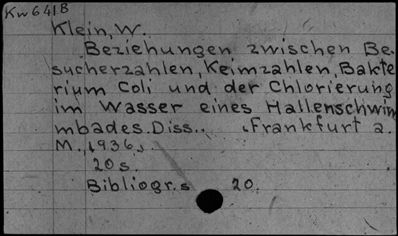 Kw641B
Klein, W.
Beziehungen zwischen Be-
sucherzahlen, Keimzahlen, Bakte
rium Coli und der Chlorierung
im Wasser eines Hallenschwim
mbades. Diss., Frankfurt a.
M., 1936.
20s.
Bibliogr. s 20.